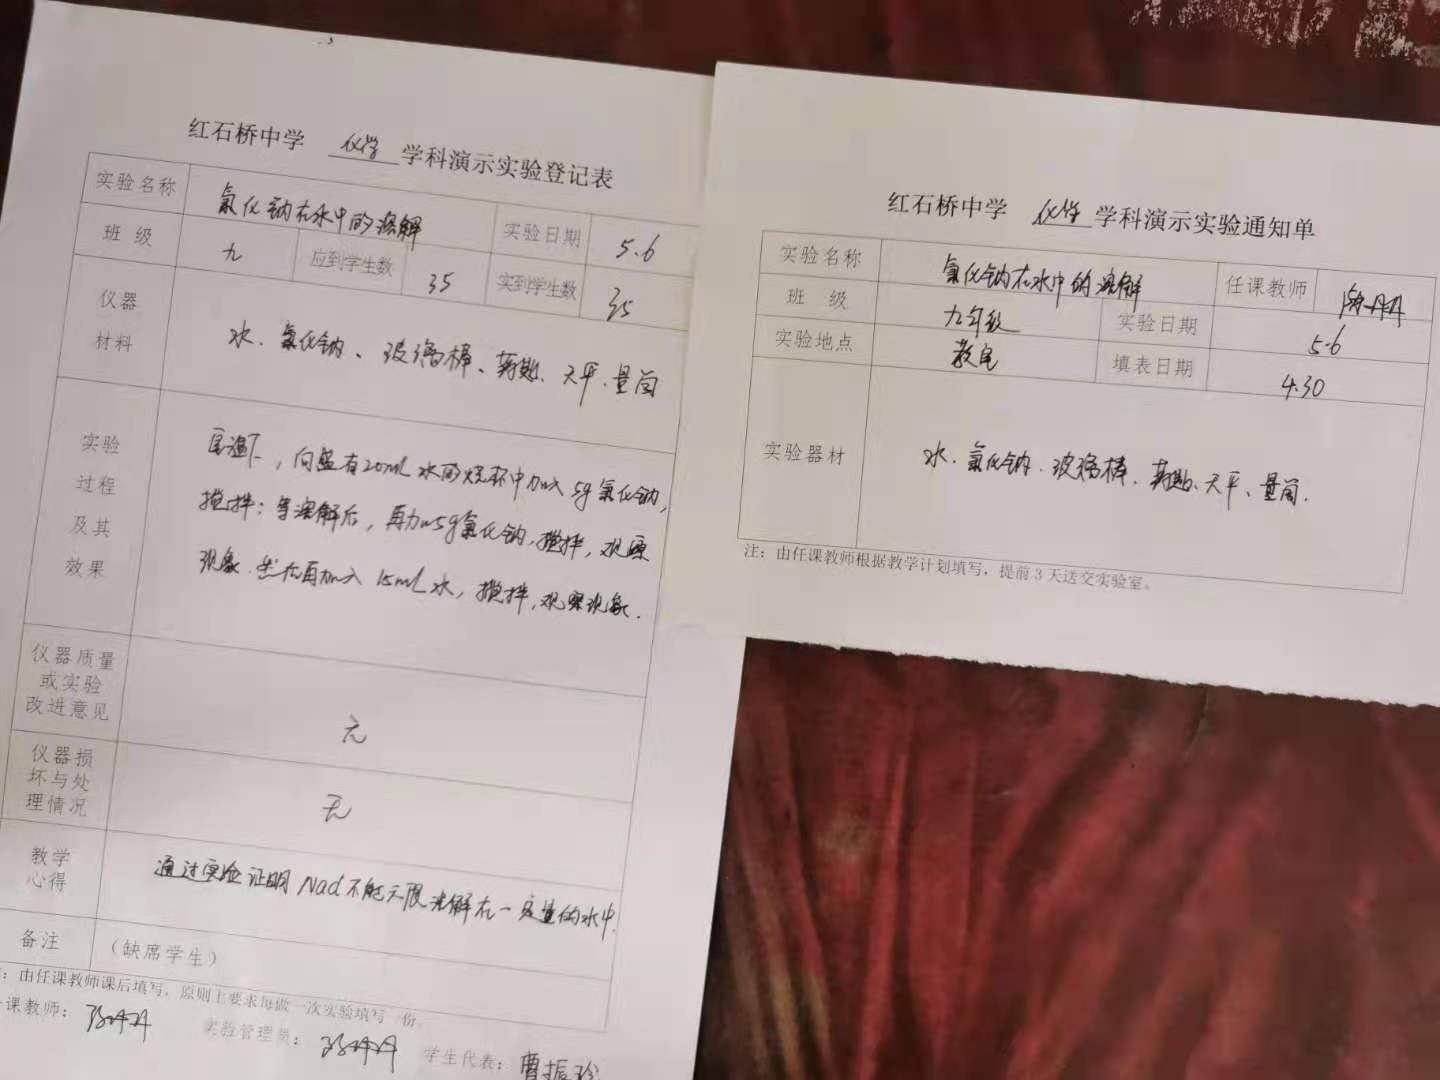 红石桥中学 化学 学科演示实验登记表
实验名称 氯化钠在水中的溶解 实验日期 5.6
班级 九 应到学生数 35 实到学生数 35
仪器
材料
水、氯化钠、玻璃棒、药匙、天平、量筒
实验
过程
及其
效果
室温下,向盛有20mL水的烧杯中加入5g氯化钠,
搅拌;等溶解后,再加5g氯化钠,搅拌,观察
现象.然后再加入15mL水,搅拌,观察现象.
仪器质量
或实验
改进意见
无
仪器损
坏与处
理情况
无
教学
心得
通过实验证明NaCl不能无限溶解在一定量的水中.
备注 (缺席学生)
:由任课教师课后填写,原则上要求每做一次实验填写一份。
课教师: 实验管理员: 学生代表:曹振玲
红石桥中学 化学 学科演示实验通知单
实验名称 氯化钠在水中的溶解 任课教师
班级 九年级 实验日期 5.6
实验地点 教室 填表日期 4.30
实验器材 水.氯化钠.玻璃棒.药匙、天平、量筒.
注:由任课教师根据教学计划填写,提前3天送交实验室。